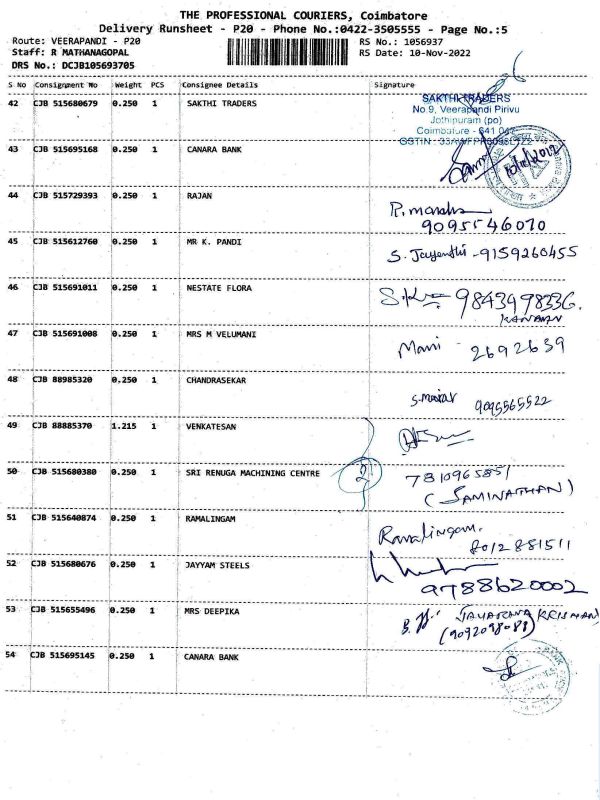 THE PROFESSIONAL COURIERS, Coimbatore
Delivery Runsheet - P20 - Phone No.:0422-3505555 - Page No.:5
Route: VEERAPANDI - P20 RS No.: 1056937
Staff: R MATHANAGOPAL RS Date: 10-Nov-2022
DRS No.: DCJB105693705
S No Consignment No Weight PCS Consignee Details Signature
42 CJB 515680679 0.250 1 SAKTHI TRADERS
SAKTHI TRADERS
No.9, Veerapandi Pirivu
Jothipuram (po)
Coimbatore - 641 047
GSTIN :
43 CJB 515695168 0.250 1 CANARA BANK
44 CJB 515729393 0.250 1 RAJAN
9095546070
45 CJB 515612760 0.250 1 MR K. PANDI
S. Jayanthi - 9159260455
46 CJB 515691011 0.250 1 NESTATE FLORA
9843498336.
KANNAN
47 CJB 515691008 0.250 1 MRS M VELUMANI
Mani - 2692639
48 CJB 88985320 0.250 1 CHANDRASEKAR
9095565522
49 CJB 88885370 1.215 1 VENKATESAN
50 CJB 515680380 0.250 1 SRI RENUGA MACHINING CENTRE
2
7810965851
(SAMINATHAN)
51 CJB 515640874 0.250 1 RAMALINGAM
Ramalingam.
8012881511
52 CJB 515680676 0.250 1 JAYYAM STEELS
9788620002
53 CJB 515655496 0.250 1 MRS DEEPIKA
(9092098088)
54 CJB 515695145 0.250 1 CANARA BANK